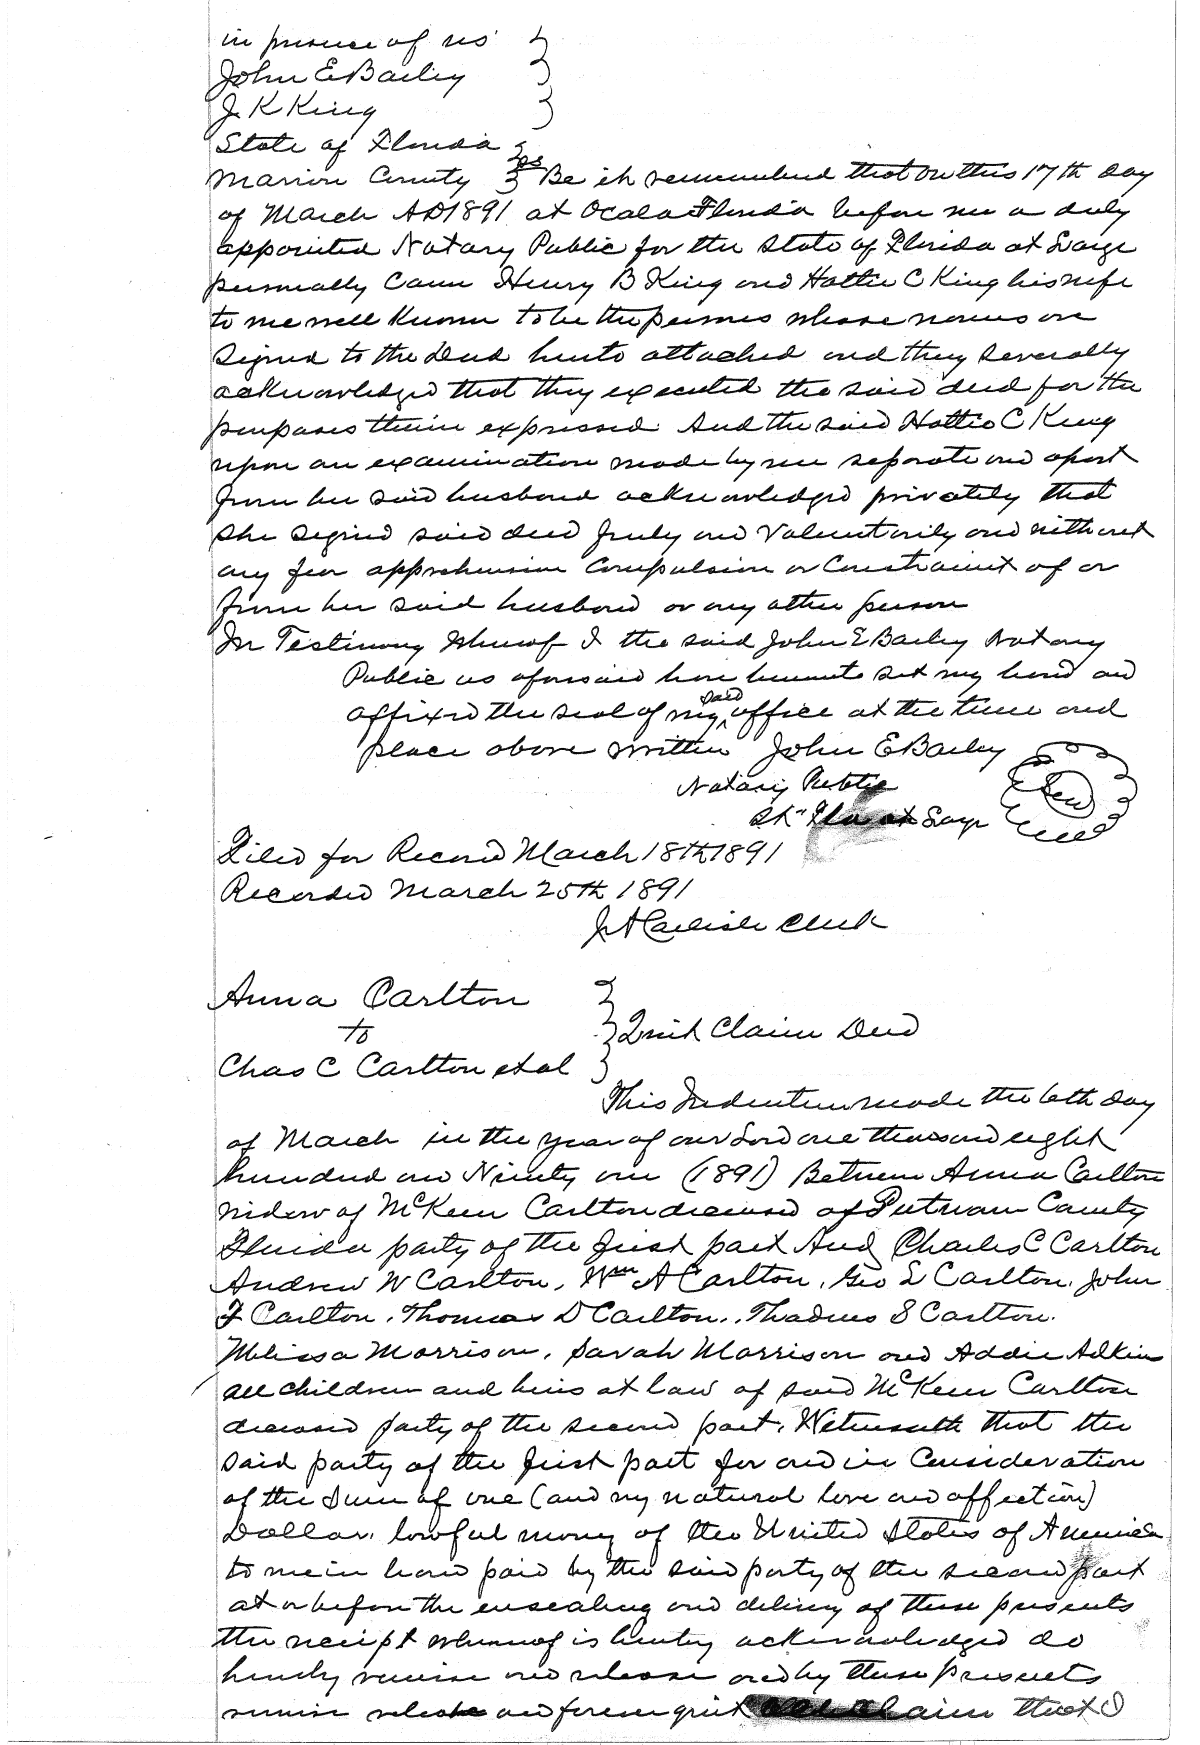 in presence of us
John E Bailey
J. K King
State of Florida
Marion County ss Be it remembered that on this 17th day
of March AD 1891 at Ocala Florida before me a duly
appointed Notary Public for the State of Florida at Large
personally came Henry B King and Hattie C King his wife
to me well known to be the persons whose names are
signed to the deed hereto attached and they severally
acknowledged that they executed the said deed for the
purposes therein expressed And the said Hattie C King
upon an examination made by me separate and apart
from her said husband acknowledged privately that
she signed said deed freely and voluntarily and without
any fear apprehension compulsion or constraint of or
from her said husband or any other person
In Testimony Whereof I the said John E Bailey Notary
Public as aforesaid have hereunto set my hand and
affixed the seal of my said office at the time and
place above written John E Bailey
Notary Public
St. Fla at Large
Seal
Filed for Record March 18th 1891
Recorded March 25th 1891
J A Carlisle Clerk
Anna Carlton
to
Quit Claim Deed
Chas C Carlton et al
This Indenture made the 6th day
of March in the year of our Lord one thousand eight
hundred and Ninety one (1891) Between Anna Carlton
widow of McKeen Carlton deceased of Putnam County
Florida party of the first part And Charles C Carlton
Andrew W Carlton, Wm A Carlton, Geo L Carlton, John
F Carlton, Thomas D Carlton, Thadeus S Carlton.
Melissa Morrison, Sarah Morrison and Addie Adkins
all children and heirs at law of said McKeen Carlton
deceased party of the second part, Witnesseth that the
said party of the first part for and in Consideration
of the Sum of one (and my natural love and affection)
Dollar. lawful money of the United States of America
to me in hand paid by the said party of the second part
at or before the ensealing and delivery of these presents
the receipt whereof is hereby acknowledged do
hereby remise and release and by these presents
remise release and forever quit claim that I